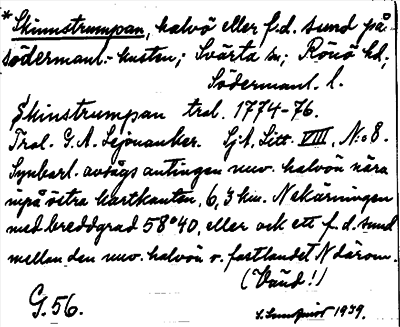 *Skinnstrumpan, halvö eller f.d. sund på
södermanl.-kusten; Svärta sn; Rönö hd;
Södermanl. l.
Skinstrumpan tral. 1774-76.
Tral. G. A. Lejonanker. Sj.A. Litt. VIII, No 8.
Synbarl. avsågs antingen nuv. halvön nära
inpå östra kartkanten, 6,3 km. N skärningen
med breddgrad 58°40, eller ock ett f.d. sund
mellan den nuv. halvön o. fastlandet N därom.
(Vänd!)
G. 56.
1939.